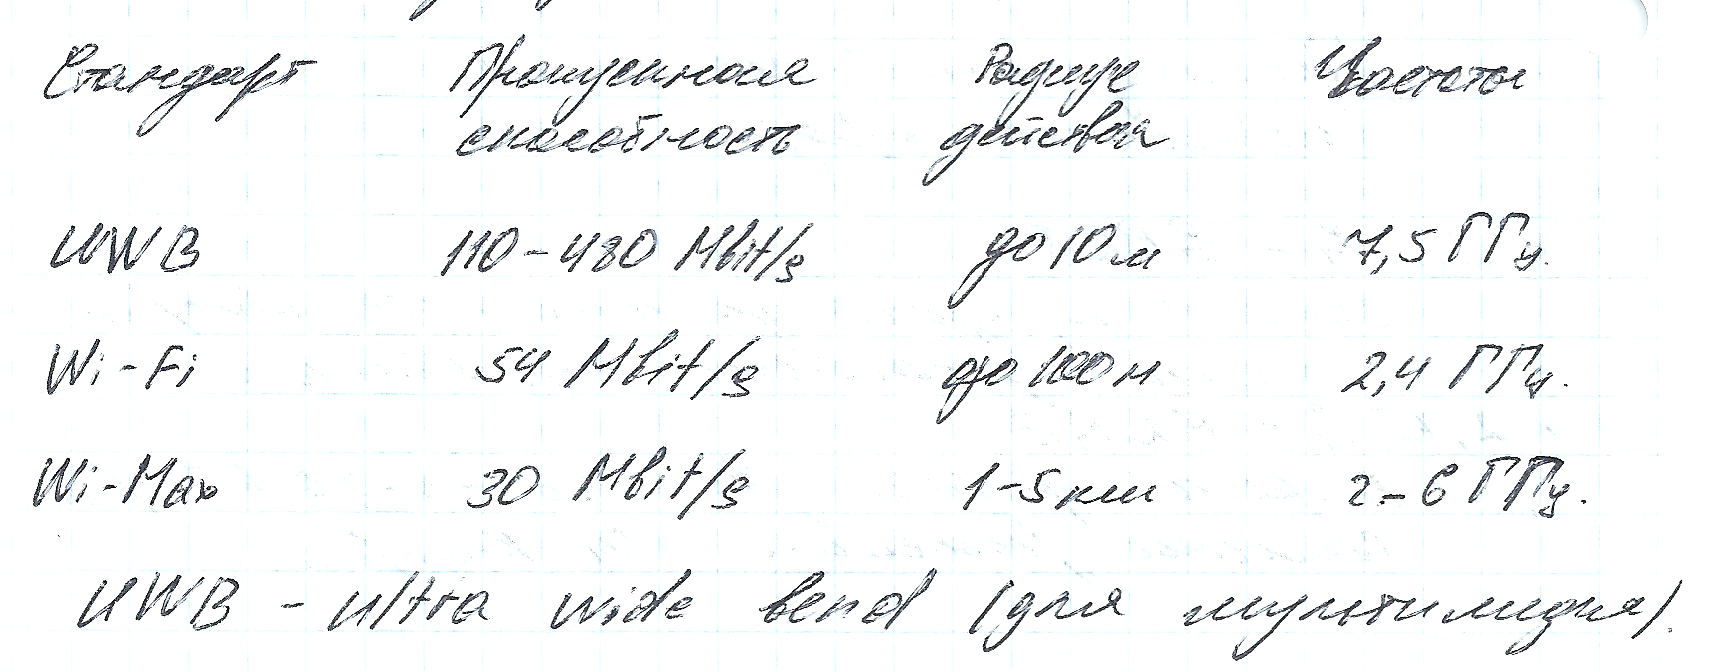 Стандарт Пропускная Радиус Частоты
способность действия
UWB 110-480 Mbit/s до 10 м 7,5 ГГц.
Wi-Fi 54 Mbit/s до 100 м 2,4 ГГц.
Wi-Max 30 Mbit/s 1-5 км 2-6 ГГц.
UWB - ultra wide bend (для мультимедия).